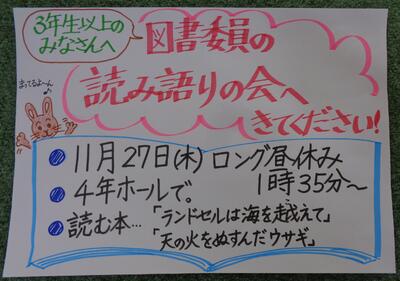 3年生以上の
みなさんへ
図書委員の
読み語りの会へ
きてください!
まってるよ〜ん♪
11月27日(木)ロング昼休み
1時35分〜
4年ホールで。
読む本…「ランドセルは海を越えて」
「天の火をぬすんだウサギ」